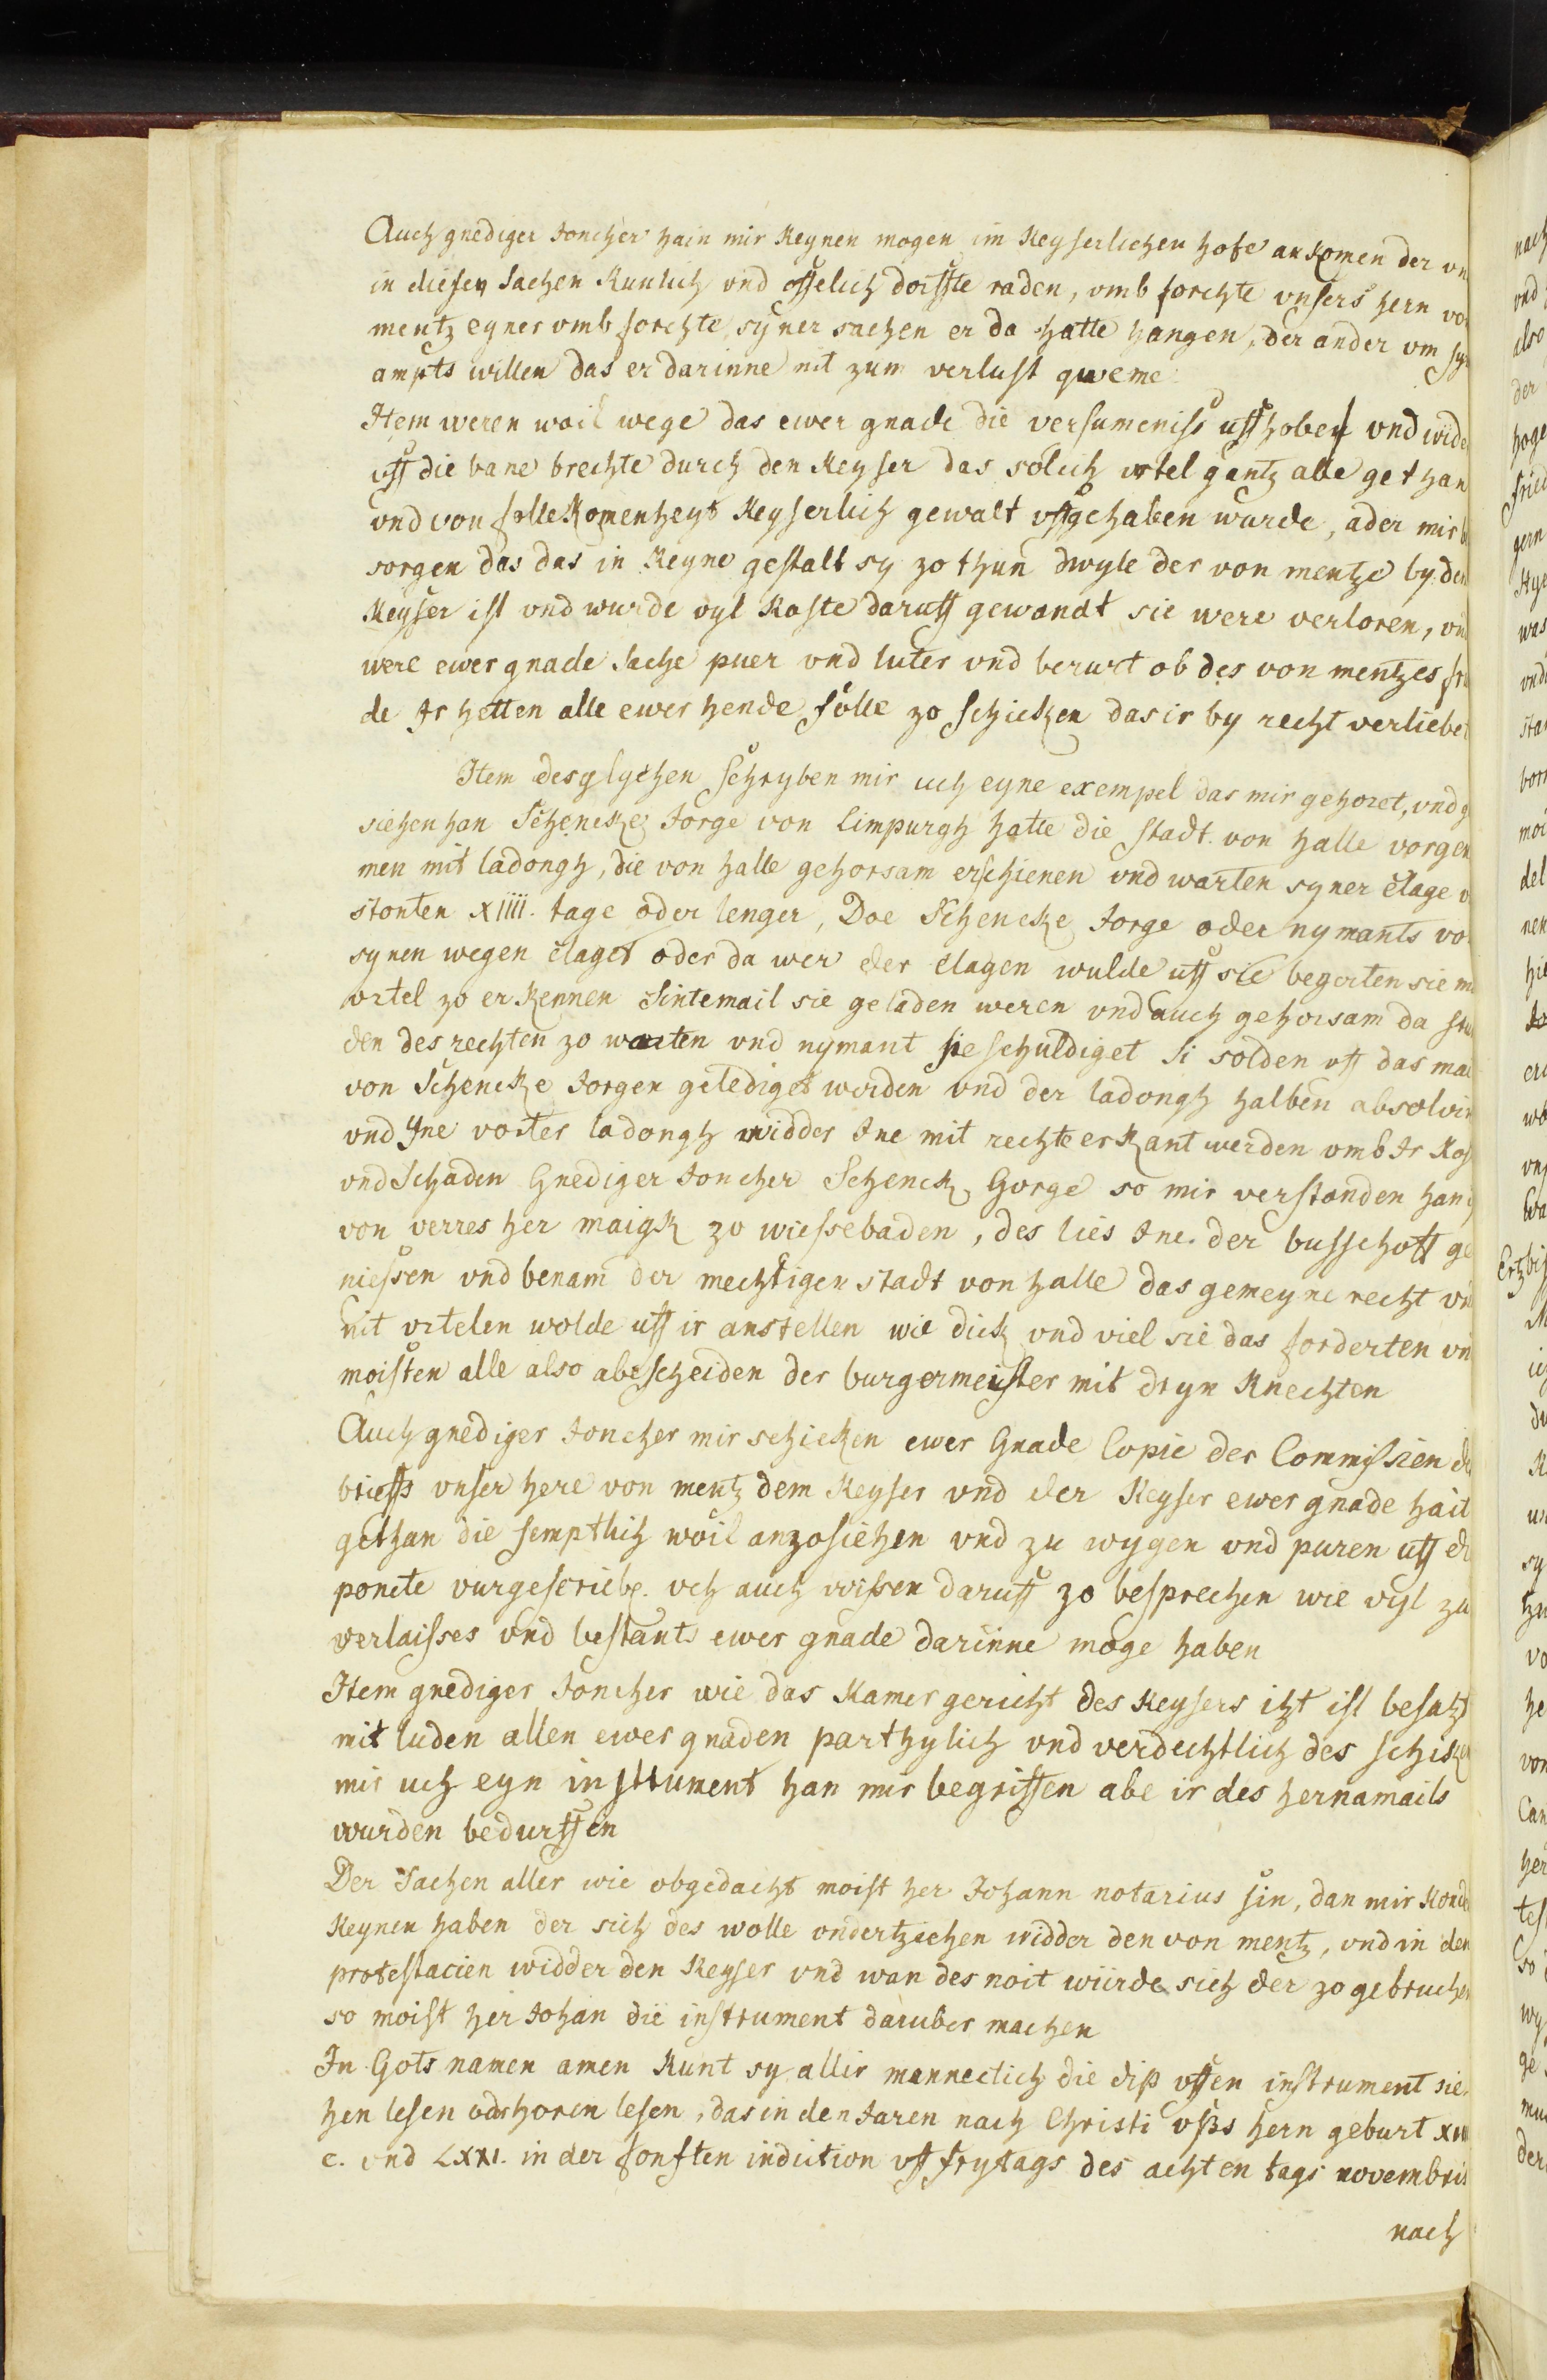 Auch gnediger Joncher hain mir keynen mogen im keyserlichen hofe ankomen der vn
in diesen sachen kunlich vnd offelich dorffte raden, vmb forchte vnsers hern vo
mentz eyner vmb forchte syner sachen er da hatte hangen, der ander vm sy
ampts willen das er darinne nit zum verlust qweme
Item weren wail wege das ewer gnade die versumeniss uffhoben vnd wide
uff die bane brechte durch den keyser das solich ortel gantz abe gethan
vnd von follekomenheyt keyserlich gewalt uffgehaben wurde, ader mir b
sorgen das das in keyne gestalt sy zo thun dwyle der von mentze by den
keyser ist vnd wurde vyl koste daruff gewandt sie were verloren, vn
were ewer gnade sache puer vnd luter vnd berurt ob des von mentzes fr
de Ir hetten alle ewer hende folle zo schicken das ir by recht verliebe
Item desglychen schryben mir uch eyne exempel das mir gehoret, vnd g
siehen han Schencke Jorge von Limpurgh hatte die stadt von halle vorgen
men mit ladongh, die von halle gehorsam erschienen vnd warten syner clage v
stonten XIIII. tage oder lenger, Doe Schencke Jorge oder nymants vo
synen wegen claget oder da wer der clagen wulde uff sie begerten sie m
ortel zo erkennen sintemail sie geladen weren vnd auch gehorsam da st
den des rechten zo warten vnd nymant sie schuldiget si solden uff das ma
von Schencke Jorgen gelediget werden vnd der ladongh halben absolvir
vnd Yne vorter ladongh widder Ine mit rechte erkant werden vmb Ir Kos
vnd Schaden Gnediger Joncher Schenck Gorge so mir verstanden han
von verres her maigk zo wiessebaden, des lies Ine der busschoff ge
niessen vnd benam der mechtigen stadt von halle das gemeyne recht vn
nit ortelen wolde uff ir anstellen wie dick vnd viel sie das forderten vn
moisten alle also abescheiden der burgermeister mit dryn knechten
Auch gnediger Joncher mir schicken ewer Gnade Copie der Commissien d
brieffs vnser here von mentz dem keyser vnd der keyser ewer gnade hait
gethan die semptlich woil anzosiehen vnd zu wygen vnd puren uff d
poncte vurgescriebe. vch auch wissen daruff zo besprechen wie vyl zu
verlaisses vnd bestants ewer gnade darinne moge haben
Item gnediger Joncher wie das kamergericht des keysers itzt ist besatzt
mit luden allen ewer gnaden parthylich vnd verdechtlich des schicke
mir uch eyn instrument han mir begriffen abe ir des hernamails
wurden bedurffen
Der Sachen aller wie obgedacht moist her Johann notarius sin, dan mir kond
keynen haben der sich des wolle ondertziehen widder den von mentz, vnd in den
protestacien widder den keyser vnd wan des noit würde sich der zo gebruchen
so moist her Johan die instrument daruber machen
In Gots namen amen kunt sy allir mannectich die diß uffen instrument sie-
hen lesen oder horen lesen, das in den Jaren nach Christi vßs hern geburt XIIII
c. vnd LXXI. in der fonften indiction uff frytags des achten tags novembris
nach